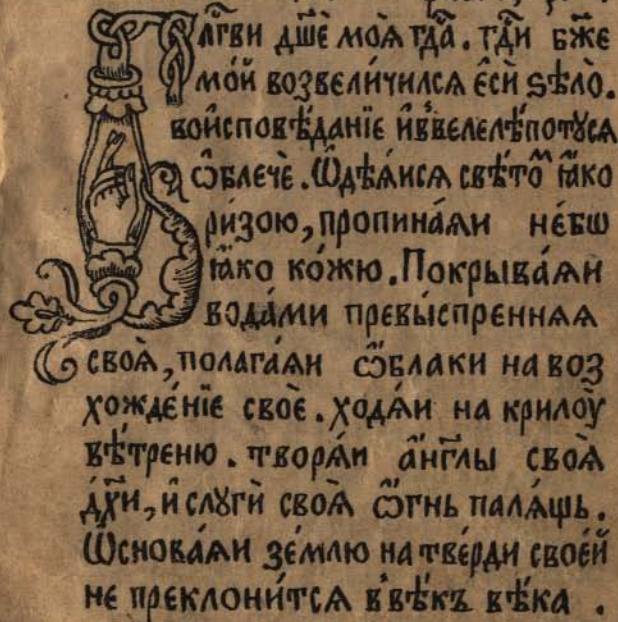 Блг҃ви дш҃е моѧ̀ гд҃а. гд҃и бж҃е
мо́й возвели́чилсѧ є҆сѝ ѕѣло̀.
воисповѣ́данїе и҆ввелелѣ́потꙋсѧ
ѡ҆блечѐ. Ѡ҆дѣ́ѧисѧ свѣ́тоⷨ ꙗ҆́ко
ри́зою, пропина́ѧи не́бѡ
ꙗ҆́ко ко́жю. Покрыва́ѧи
вода́ми превы́спреннѧѧ
своѧ̀, полага́ѧи ѡ҆́блаки на воз
хожде́нїе своѐ. ходѧ́и на крилоу̑
вѣ́треню. творѧ́и а҆́нгл҃ы своѧ̀
дх҃и, и҆ слꙋгѝ своѧ̀ ѡ҆́гнь палѧ́щь.
Ѡ҆снова́ѧи зе́млю на тве́рди свое́й
не преклони́тсѧ в̾вѣ́къ вѣ́ка.